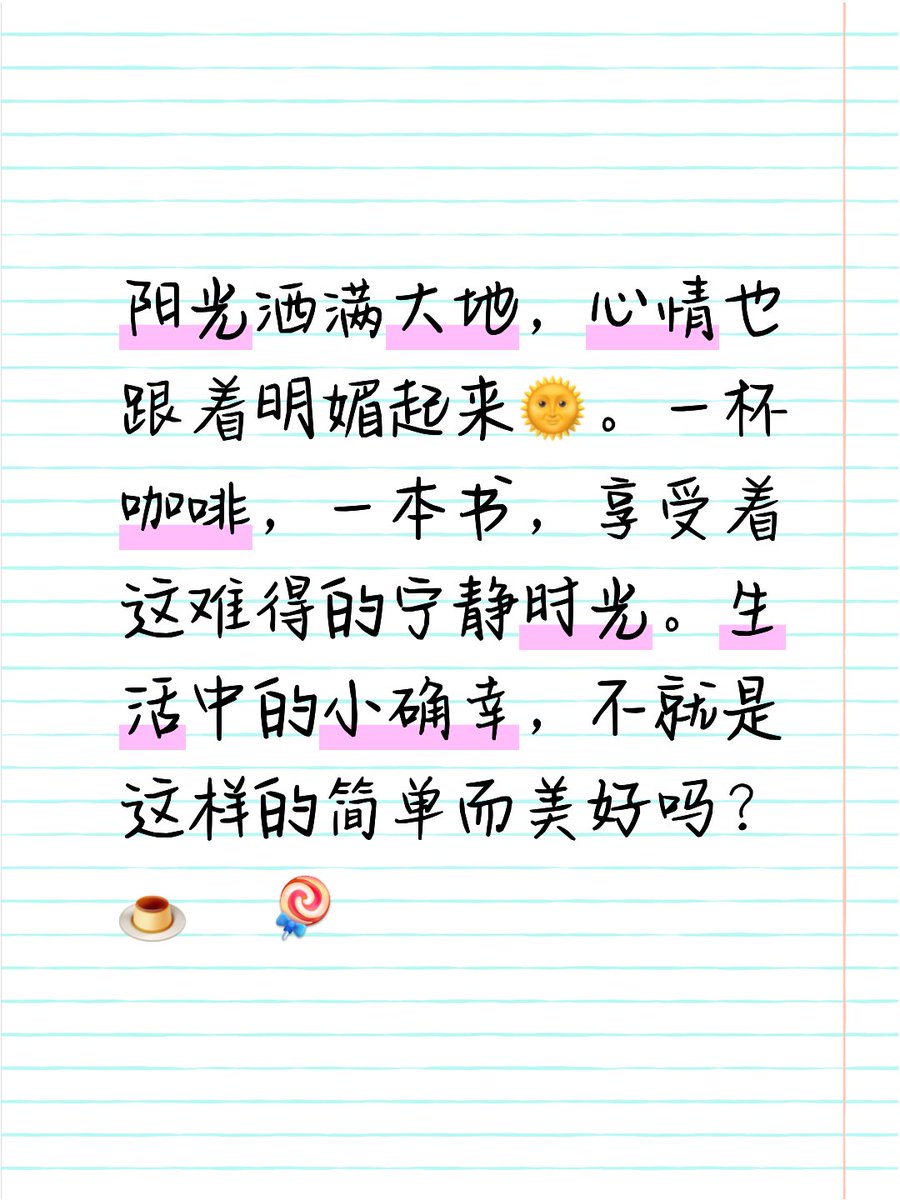 阳光洒满大地，心情也
跟着明媚起来🌞。一杯
咖啡，一本书，享受着
这难得的宁静时光。生
活中的小确幸，不就是
这样的简单而美好吗？
🍮 🍭